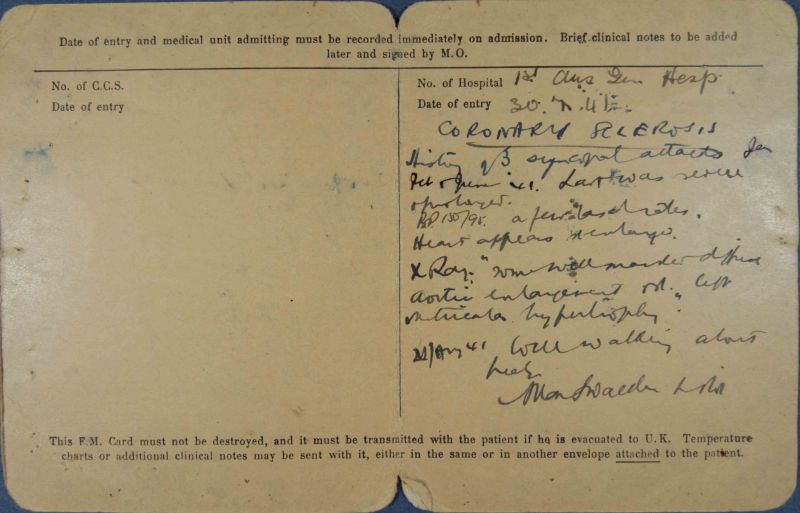 Date of entry and medical unit admitting must be recorded immediately on admission. Brief clinical notes to be added
later and signed by M.O.
No. of C.C.S.
Date of entry
No. of Hospital 1st Aus Gen Hosp.
Date of entry 30.7.41
CORONARY SCLEROSIS
History of 3 syncopal attacks Jan
Feb & June 41. Last was severe
& prolonged.
BP 150/95. a few basal rales.
Heart appears enlarged.
X Ray: "some well marked diffuse
Aortic enlargement left
ventricular hypertrophy".
Aug 41 Well walking about
freely.
This F.M. Card must not be destroyed, and it must be transmitted with the patient if he is evacuated to U.K. Temperature
charts or additional clinical notes may be sent with it, either in the same or in another envelope attached to the patient.